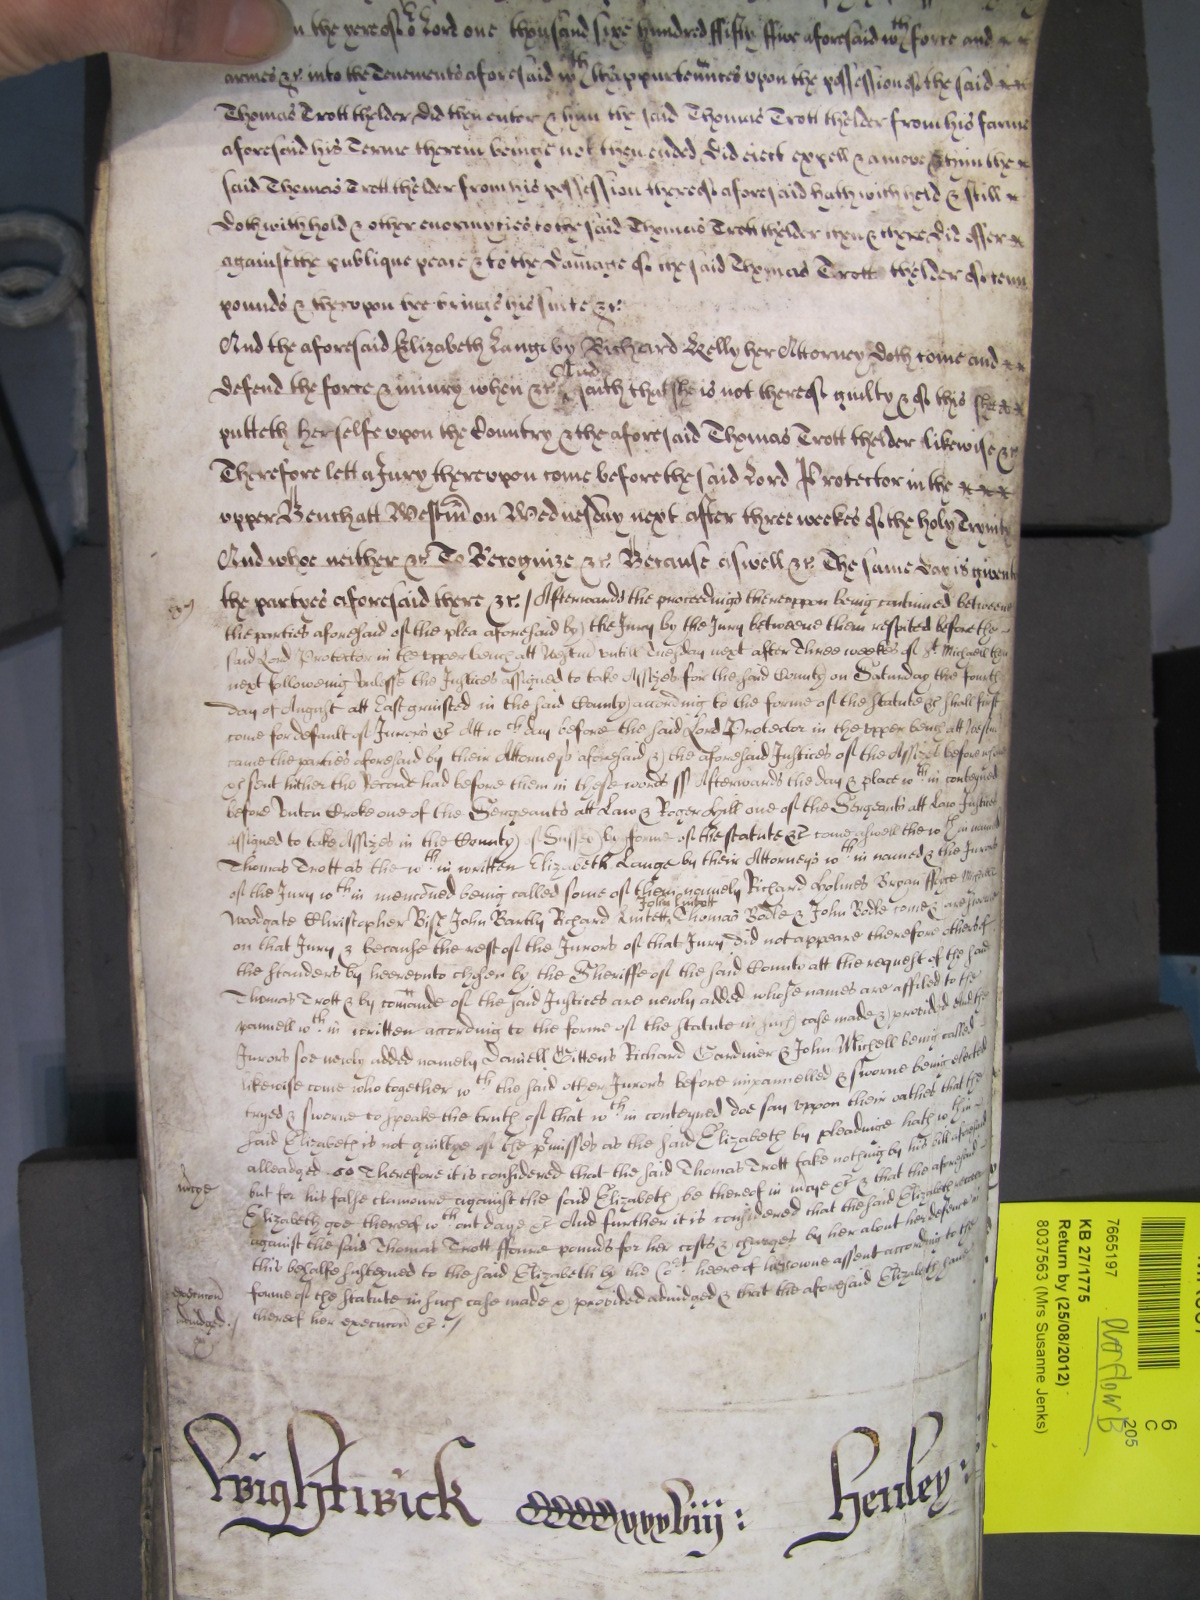 n the yere of or Lord one thousand sixe hundred ffifty ffive aforesaid wth force and
armes &c into the Tenements aforesaid wth thappurtennces upon the possession of the said
Thomas Trott thelder did then enter & him the said Thomas Trott thelder from his farme
aforesaid his Terme therein beinge not then ended did eiect expell & amove & him the
said Thomas Trott thelder from his possession thereof aforesaid hath with held & still
doth withhold & other enormyties to the said Thomas Trott thelder then & there did offer
against the publique peace & to the damage of the said Thomas Trott thelder of tenn
pounds & thereupon hee brings his suite &c
And the aforesaid Elizabeth Lange by Richard Kelly her Attorney doth come and
defend the force & iniury when &c And saith that she is not thereof guilty & of this she
putteth herselfe upon the Country & the aforesaid Thomas Trott thelder likewise &c
Therefore lett a Jury thereupon come before the said Lord Protector in the
upper Bench att Westm on Wednesday next after three weekes of the holy Trynity
And whoe neither &c To Recognize &c Because aswell &c The same day is given to
the partyes aforesaid there &c / Afterwards the proceedings thereuppon being continued betweene
the parties aforesaid of the plea aforesaid by the Jury by the Jury betweene them respited before the
said Lord Protector in the upper bench att Westm untill Tuesday next after Three weekes of St Michaell then
next followeing unlesse the Justices assigned to take Assizes for the said County on Saturday the fourth
day of August att East grinsted in the said County according to the forme of the statute &c shall first
come for default of Jurors &c Att wch day before the said Lord Protector in the upper bench att Westm
came the parties aforesaid by their Attorneys aforesaid & the aforesaid Justices of the Assizes before whom
&c sent hither the record had before them in these words ss Afterwards the day & place wth in conteyned
before Unton Croke one of the Sergeants att Law & Roger Hill one of the Sergeants att Law Justices
assigned to take Assizes in the County of Sussex by forme of the statute &c come aswell the wth in named
Thomas Trott as the wth in written Elizabeth Lange by their Attorneys wth in named & the Jurors
of the Jury wth in menconed being called some of them namely Richard Holmes Bryan Michaell
Woodgate Christopher Bist John Bartly Richard John Thomas Bodle & John Bodle come & are sworne
on that Jury & because the rest of the Jurors of that Jury did not appeare therefore others of
the standers by hereunto chosen by the Sheriffe of the said County att the request of the said
Thomas Trott & by comande of the said Justices are newly added whose names are affiled to the
pannell wth in written according to the forme of the statute in such case made & provided and the
Jurors soe newly added namely Daniell Gittens Richard Gardiner & John Michell being called
likewise come who together wth the said other Jurors before impannelled & sworne being elected
tryed & sworne to speake the truth of that wth in conteyned doe say uppon their oathes that the
said Elizabeth is not guiltye of the pmisses as the said Elizabeth by pleadinge hath wth in
alleadged Therefore it is considered that the said Thomas Trott take nothing by his bill aforesaid
mcye
but for his false clamoure against the said Elizabeth be thereof in mcye &c & that the aforesaid
Elizabeth goe thereof wth out daye &c And further it is considered that the said Elizabeth recover
against the said Thomas Trott ffoure pounds for her costs & charges by her about her defence in
this behalfe susteyned to the said Elizabeth by the Cort heere of her owne assent according to the
execucon
forme of the statute in such case made & provided adiudged & that the aforesaid Elizabeth have
adiudged
thereof her execucon &c /
Wightwick CCCCxxxviij: Henley:
7665197
KB 27/1775
Return by (25/08/2012)
8037563 (Mrs Susanne Jenks)
Overflow B
205
6
C